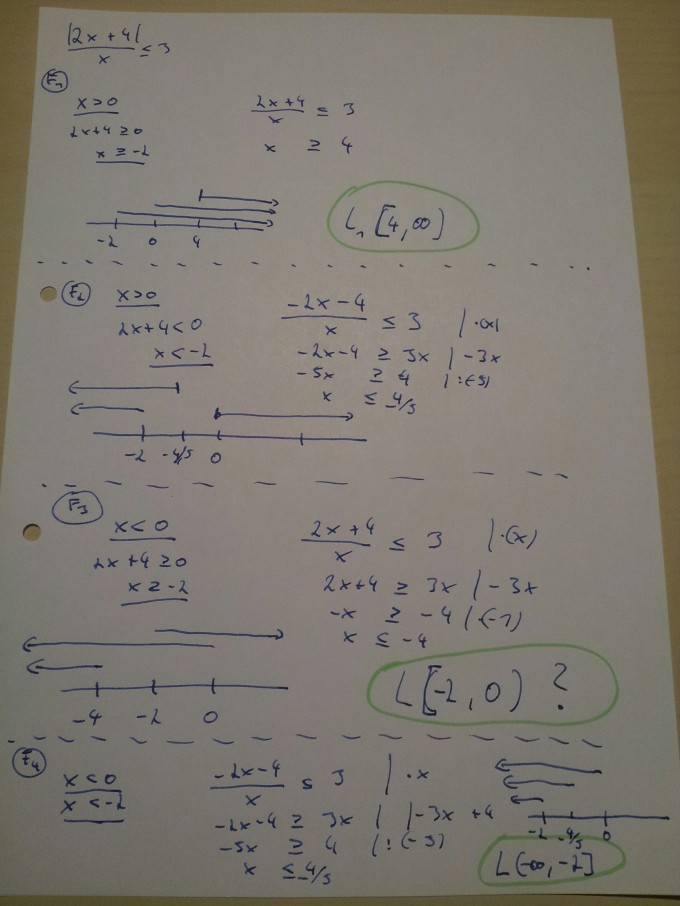 |2x + 4| / x ≤ 3
F1
x > 0
2x+4 ≥ 0
x ≥ -2
2x+4 / x ≤ 3
x ≥ 4
-2 0 4
L1 [4, ∞)
F2
x > 0
2x+4 < 0
x < -2
-2x-4 / x ≤ 3 | ·(x)
-2x-4 ≥ 3x | -3x
-5x ≥ 4 | :(-5)
x ≤ -4/5
-2 -4/5 0
F3
x < 0
2x+4 ≥ 0
x ≥ -2
2x+4 / x ≤ 3 | ·(x)
2x+4 ≥ 3x | -3x
-x ≥ -4 | (-1)
x ≤ -4
-4 -2 0
L [-2, 0) ?
F4
x < 0
x < -2
-2x-4 / x ≤ 3 | ·x
-2x-4 ≥ 3x | |-3x +4
-5x ≥ 4 | :(-5)
x ≤ -4/5
-2 -4/5 0
L(-∞, -2]